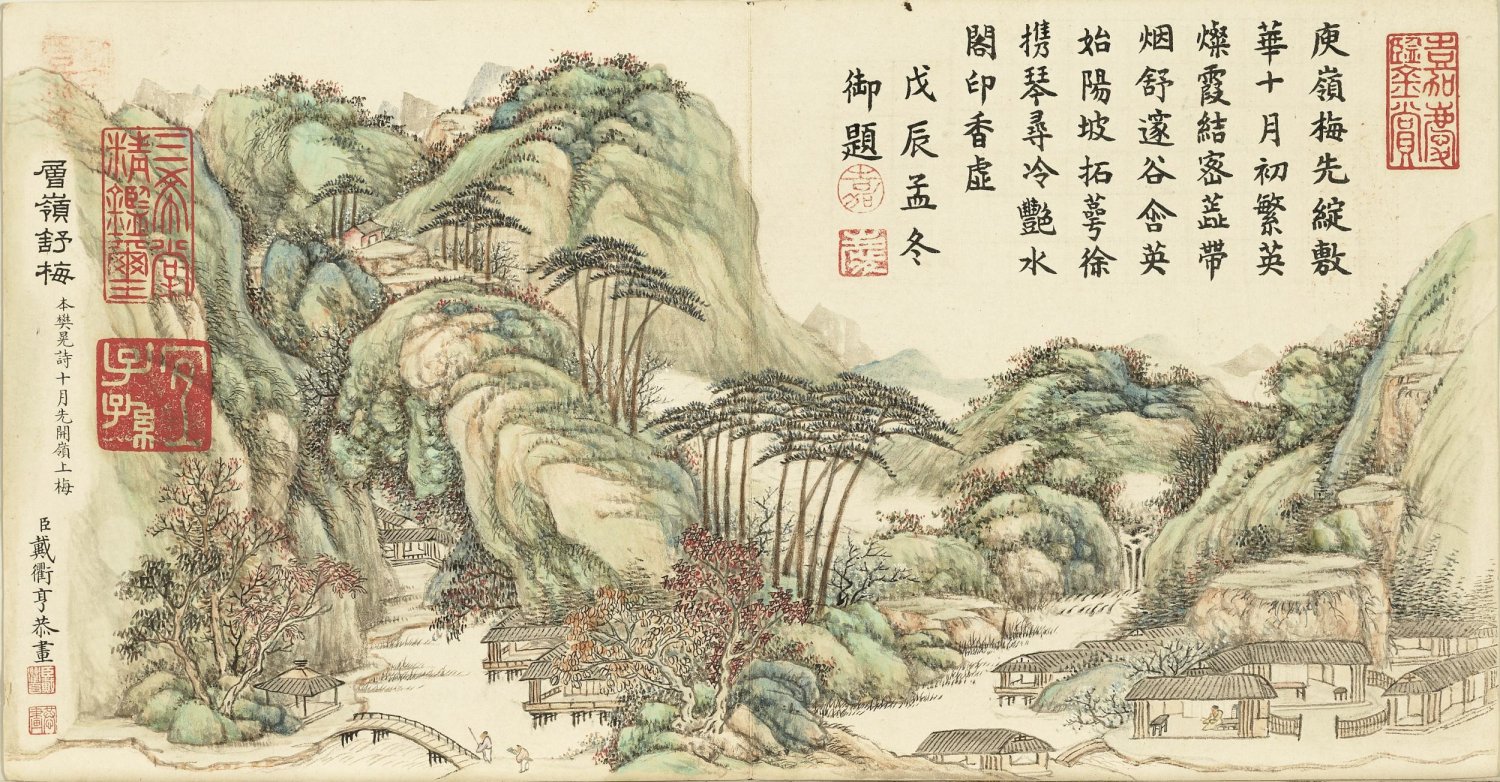 庾嶺梅先綻敷
華十月初繁英
燦霞結密蕋帶
烟舒邃谷含英
始陽坡拓萼徐
携琴尋冷艷水
閣印香虛
戊辰孟冬
御題
嘉慶鑒賞
三希堂精鑑璽
宜子孫
層嶺舒梅
本樊晃詩十月先開嶺上梅
臣戴衢亨恭畫